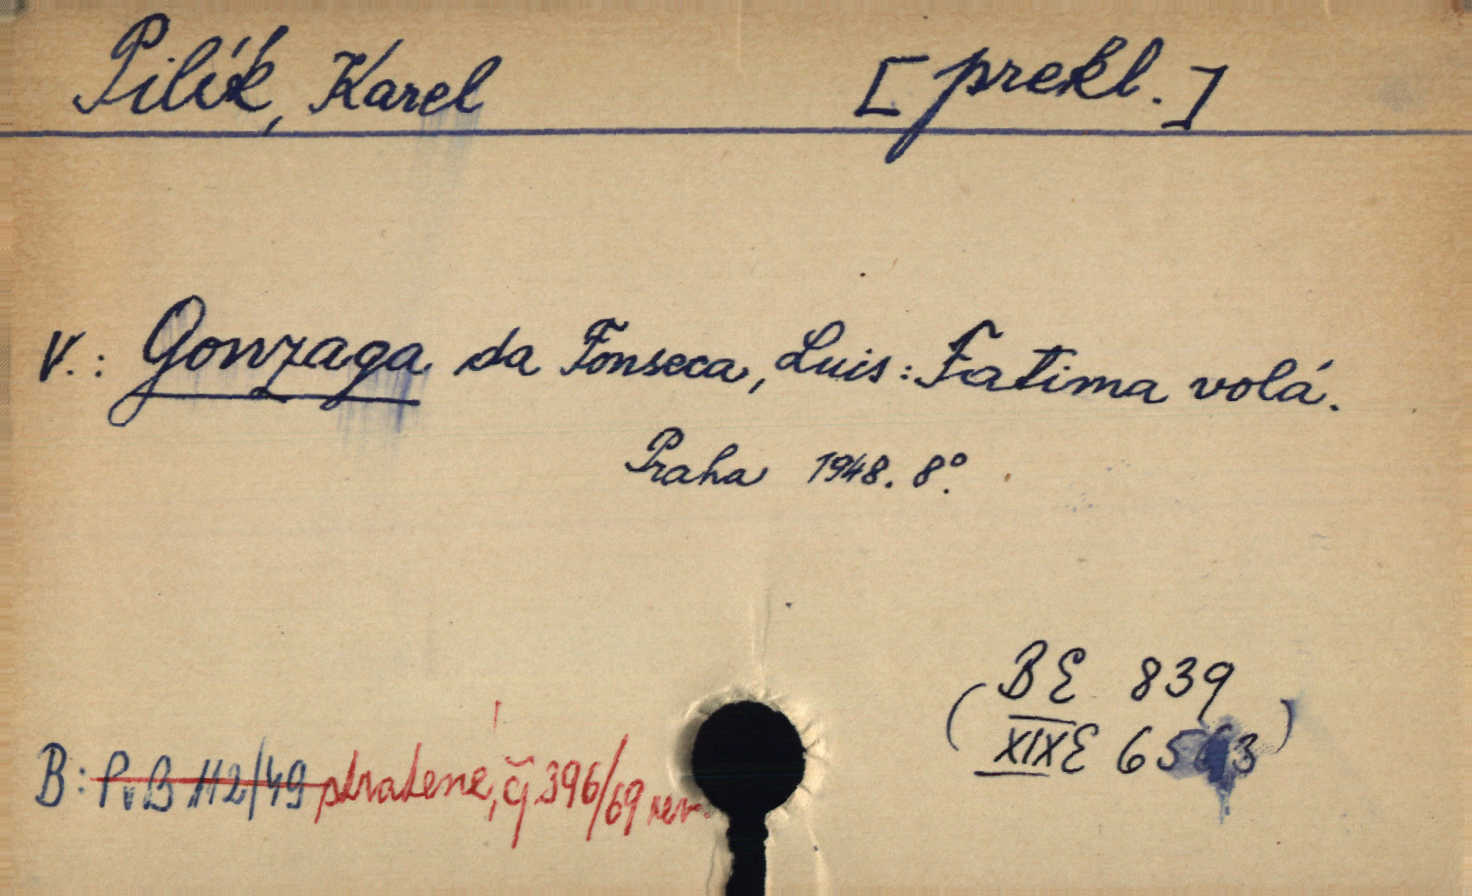 Pilík, Karel [prekl.]
V.: Gonzaga da Fonseca, Luis: Fatima volá.
Praha 1948. 8°.
BE 839
(XIXE 6563)
B: PvB 112/49 stratené, čj 396/69 rev.